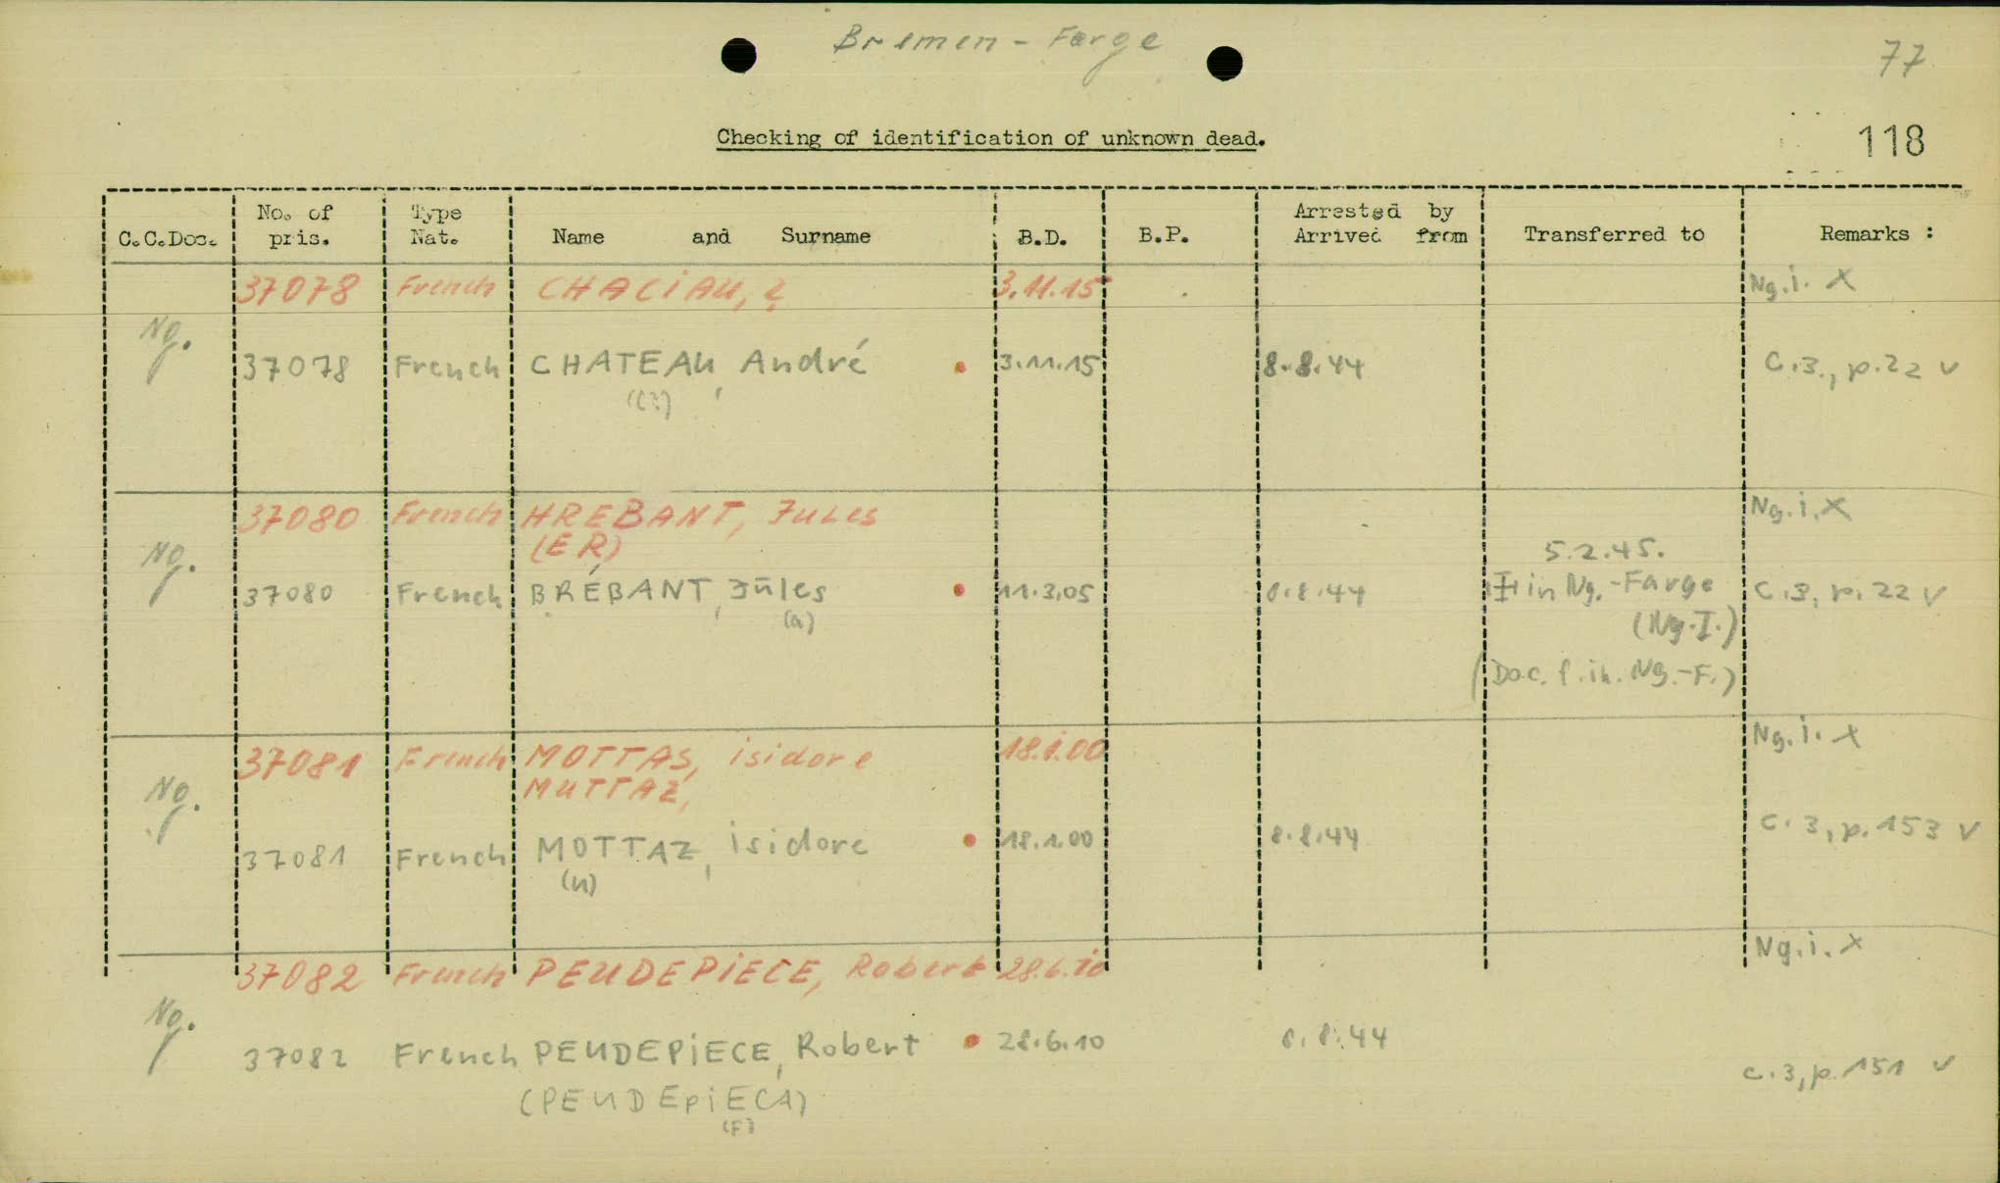 Bremen-Farge
77
Checking of identification of unknown dead.
118
C.C.Doc. No. of pris. Type Nat. Name and Surname B.D. B.P. Arrested by Arrived from Transferred to Remarks :
37078 French CHACiAU, ? 3.11.15 Ng.i. X
Ng. 37078 French CHATEAU, André 3.11.15 8.8.44 C.3., p.22 v
37080 French HREBANT, Jules Ng.i. X
(ER)
5.2.45.
Ng. 37080 French BRÉBANT, Jules 11.3.05 8.8.44 in Ng.-Farge C.3, p.22 v
(a) (Ng.I.)
(Doc. f. in. Ng.-F.)
37081 French MOTTAS, isidore 18.1.00 Ng.i. X
MUTTAZ,
Ng. 37081 French MOTTAZ, isidore 18.1.00 8.8.44 C.3, p.153 v
(u)
37082 French PEUDEPiECE, Robert 28.6.10 Ng.i. X
Ng. 37082 French PEUDEPiECE, Robert 28.6.10 8.8.44 c.3, p.151 v
(PEUDEpiECA)
(F)